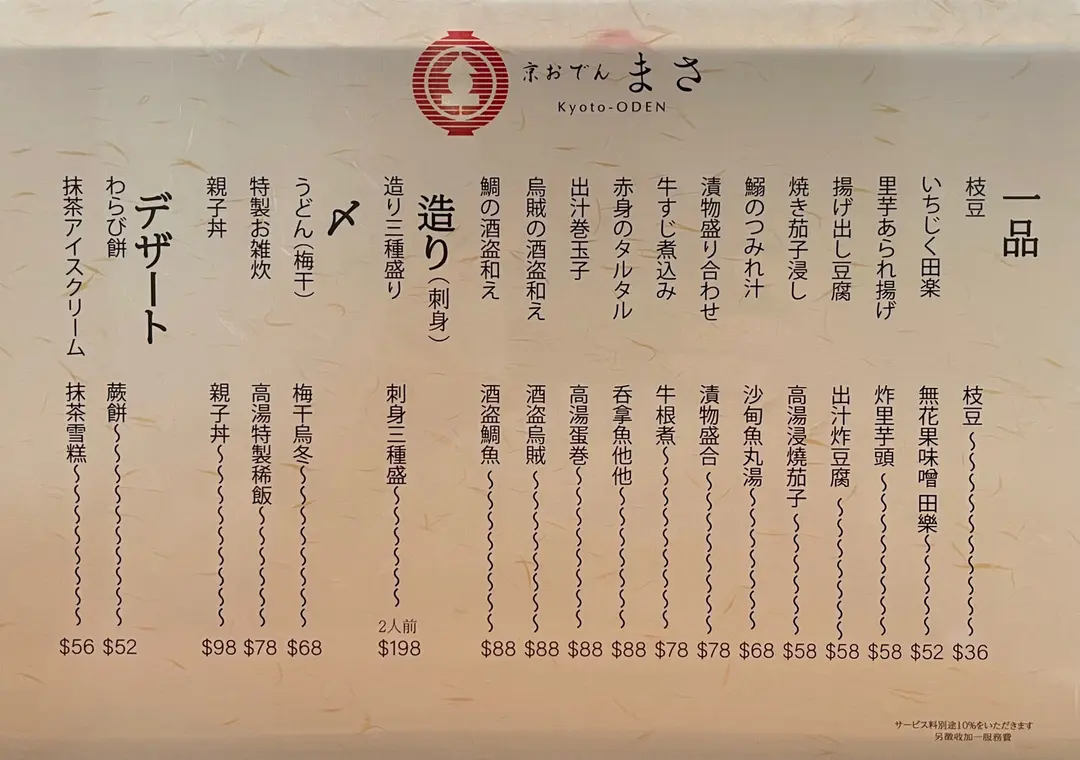 京おでん まさ
Kyoto-ODEN
一品
枝豆 枝豆 $36
いちじく田楽 無花果味噌 田樂 $52
里芋あられ揚げ 炸里芋頭 $58
揚げ出し豆腐 出汁炸豆腐 $58
焼き茄子浸し 高湯浸燒茄子 $58
鰯のつみれ汁 沙甸魚丸湯 $68
漬物盛り合わせ 漬物盛合 $78
牛すじ煮込み 牛根煮 $78
赤身のタルタル 吞拿魚他他 $88
出汁巻玉子 高湯蛋巻 $88
烏賊の酒盗和え 酒盗烏賊 $88
鯛の酒盗和え 酒盗鯛魚 $88
造り(刺身)
造り三種盛り 刺身三種盛 2人前 $198
〆
うどん(梅干) 梅干烏冬 $68
特製お雑炊 高湯特製稀飯 $78
親子丼 親子丼 $98
デザート
わらび餅 蕨餅 $52
抹茶アイスクリーム 抹茶雪糕 $56
サービス料別途10%をいただきます
另徵收加一服務費